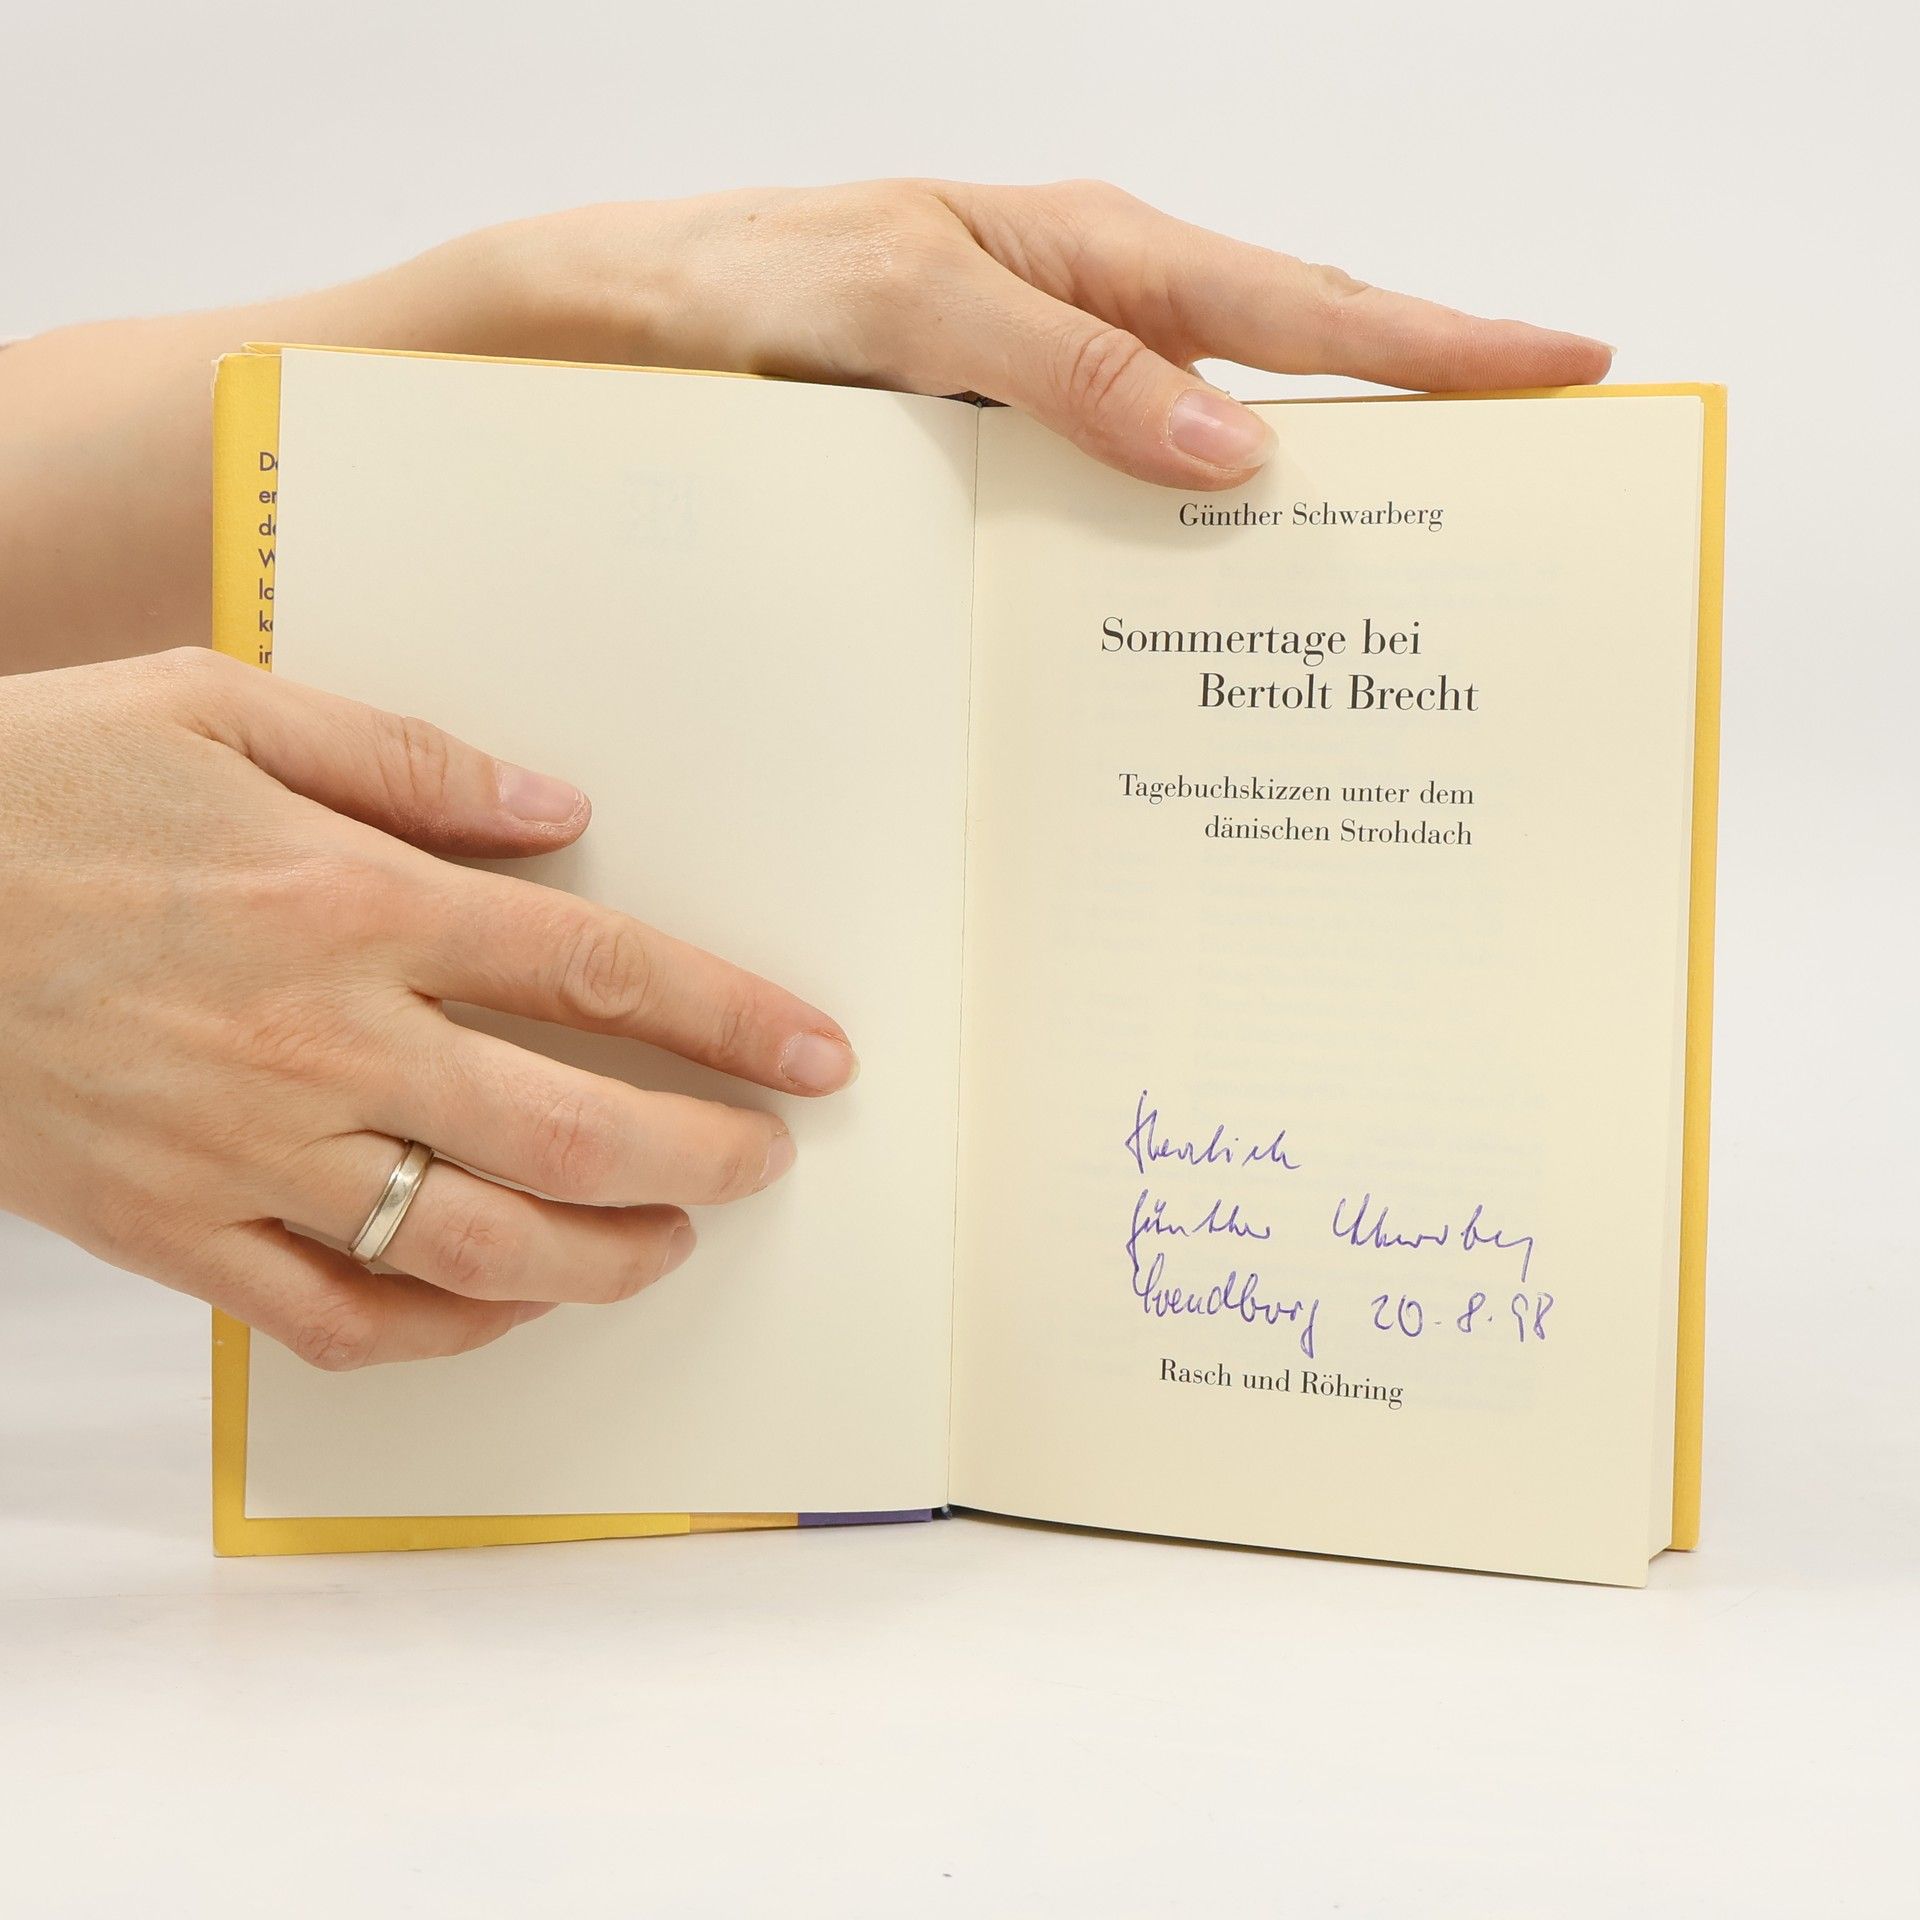 Günther Schwarberg
Sommertage bei
Bertolt Brecht
Tagebuchskizzen unter dem
dänischen Strohdach
Herzlich
Günther Schwarberg
Svendborg 20.8.98
Rasch und Röhring